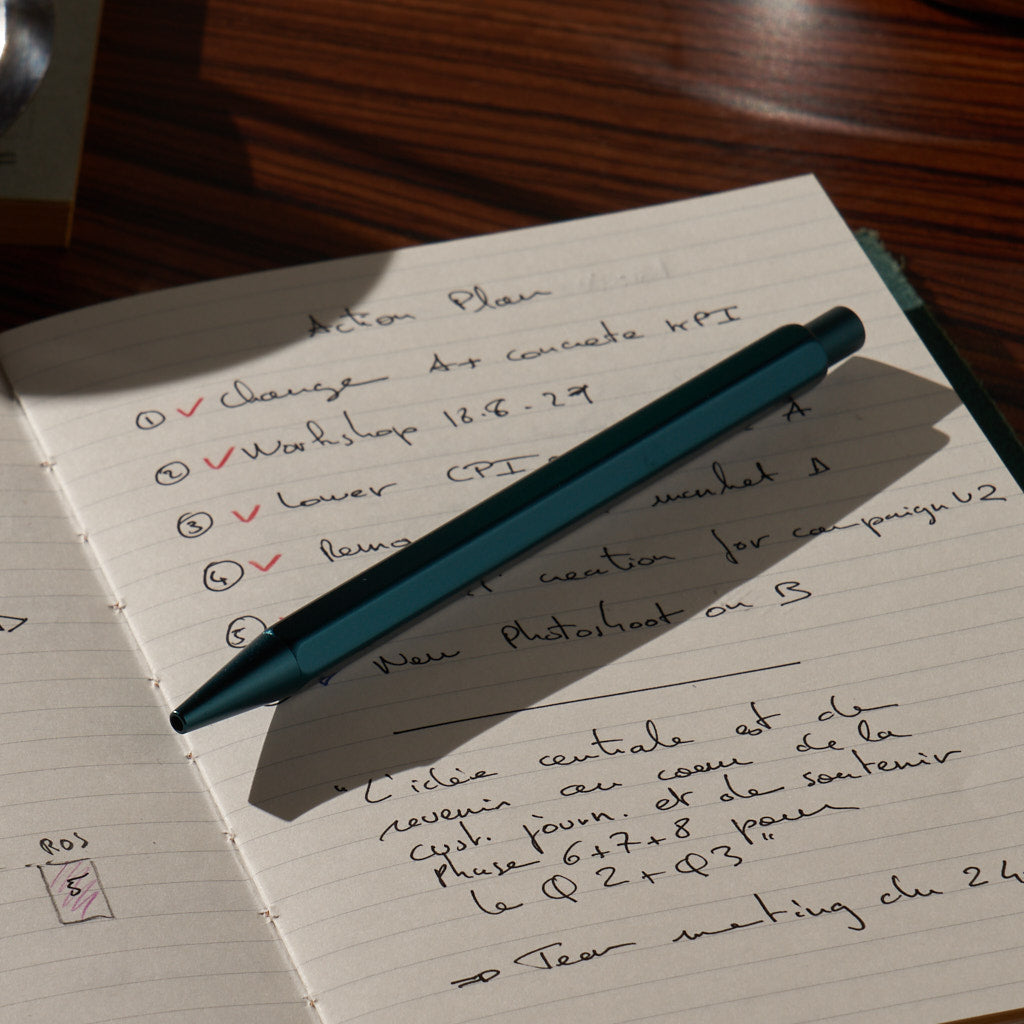 Action Plan
① ✓ Change A+ concrete KPI
② ✓ Workshop
③ ✓ Lower CPI A
④ ✓ market A
⑤ creation for campaign V2
New photoshoot on B
"L'idée centrale est de
revenir au coeur de la
cust. journ. et de soutenir
phase 6+7+8 pour
le Q2 + Q3"
⇒ Team meeting du 24
ROS